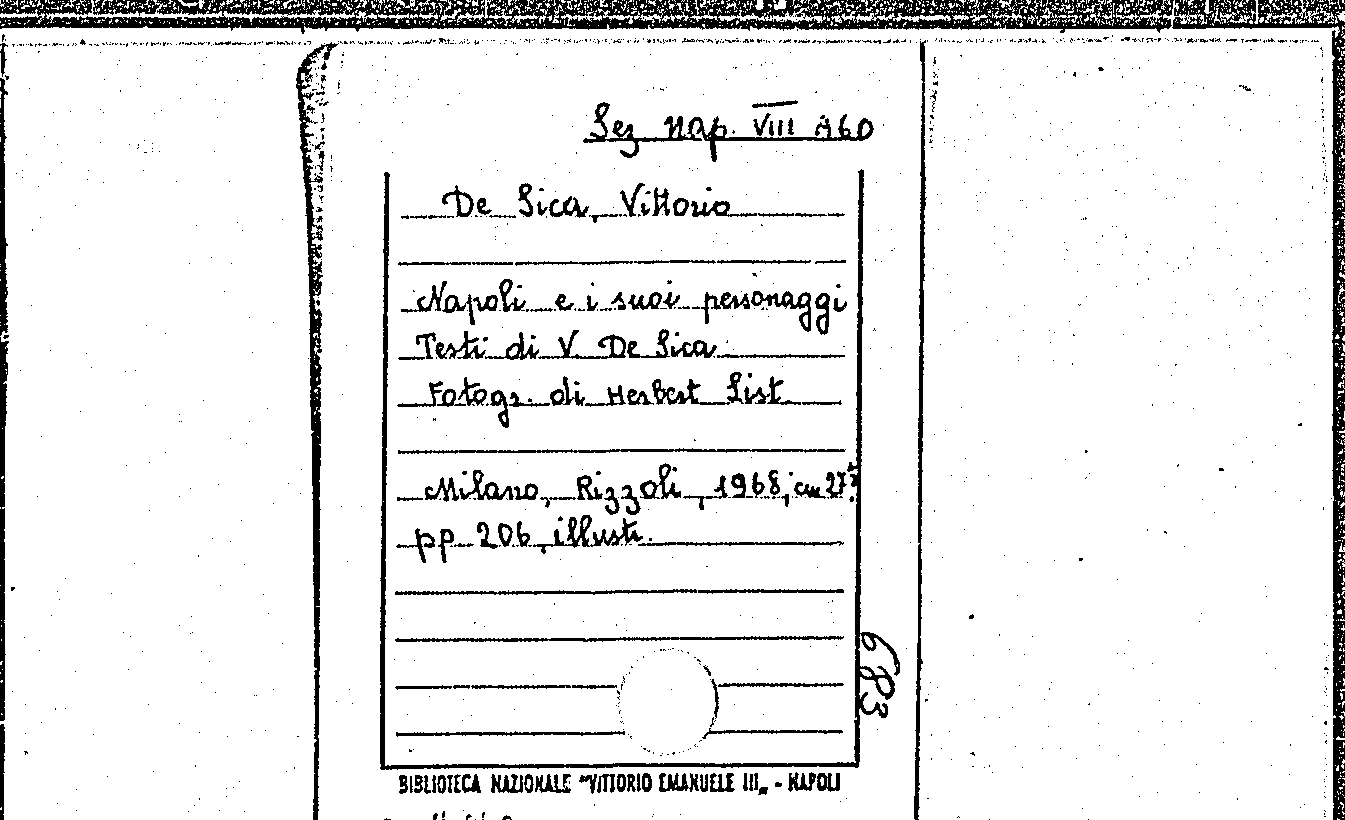 Sez Nap. VIII A60
De Sica, Vittorio
Napoli e i suoi personaggi
Testi di V. De Sica
Fotogr. di Herbert List.
Milano, Rizzoli, 1968, cm 27
pp 206, illustr.
683
BIBLIOTECA NAZIONALE "VITTORIO EMANUELE III„ - NAPOLI